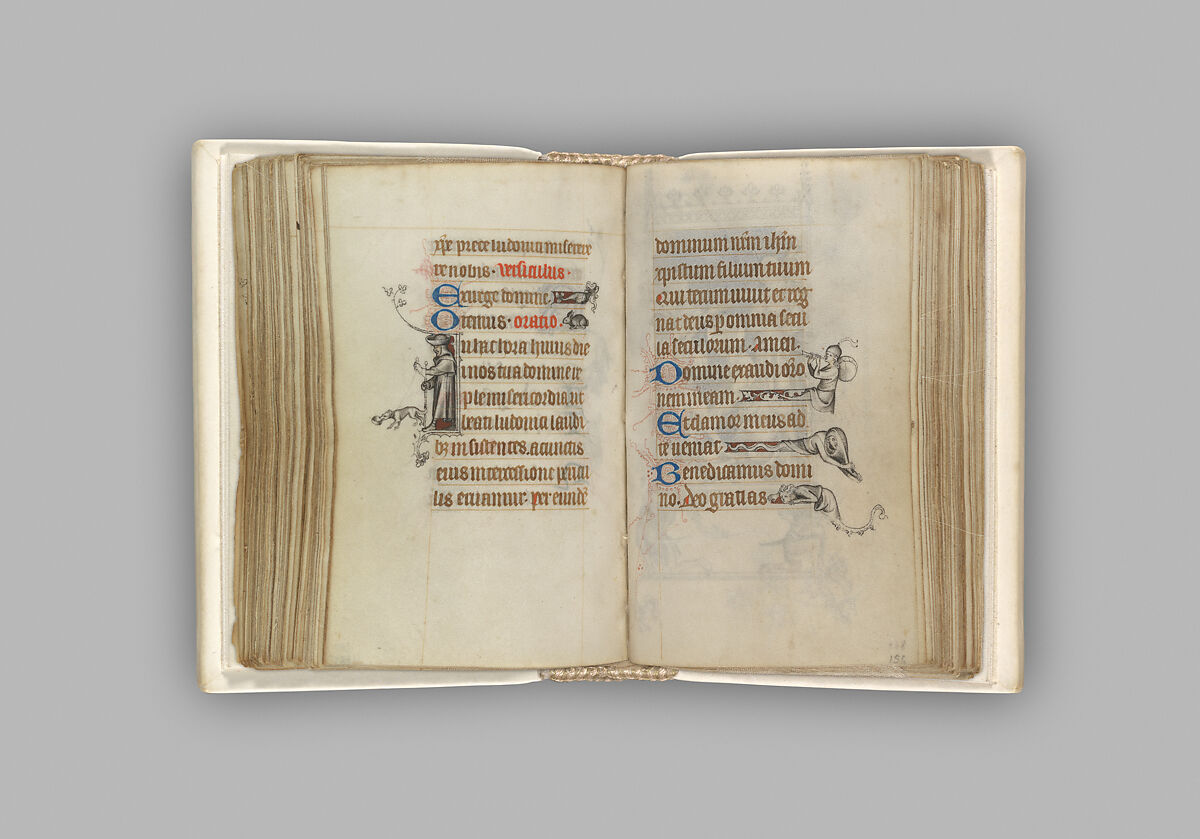 xpe prece ludovici miserere
re nobis · versiculus ·
Exurge domine
Oremus · oratio ·
In hac hora huius die
i nos tua domine re
ple misericordia ut
beati ludovici laudi
bz insistentes. a cunctis
eius intercessione pericu
lis eruamur · per eunde
dominum nrm ihm
xpistum filium tuum
Qui tecum vivit et reg
nat deus p omnia secu
la seculorum · Amen.
Domine exaudi oro
nem meam
Et clamor meus ad
te veniat.
Benedicamus domi
no. deo gratias